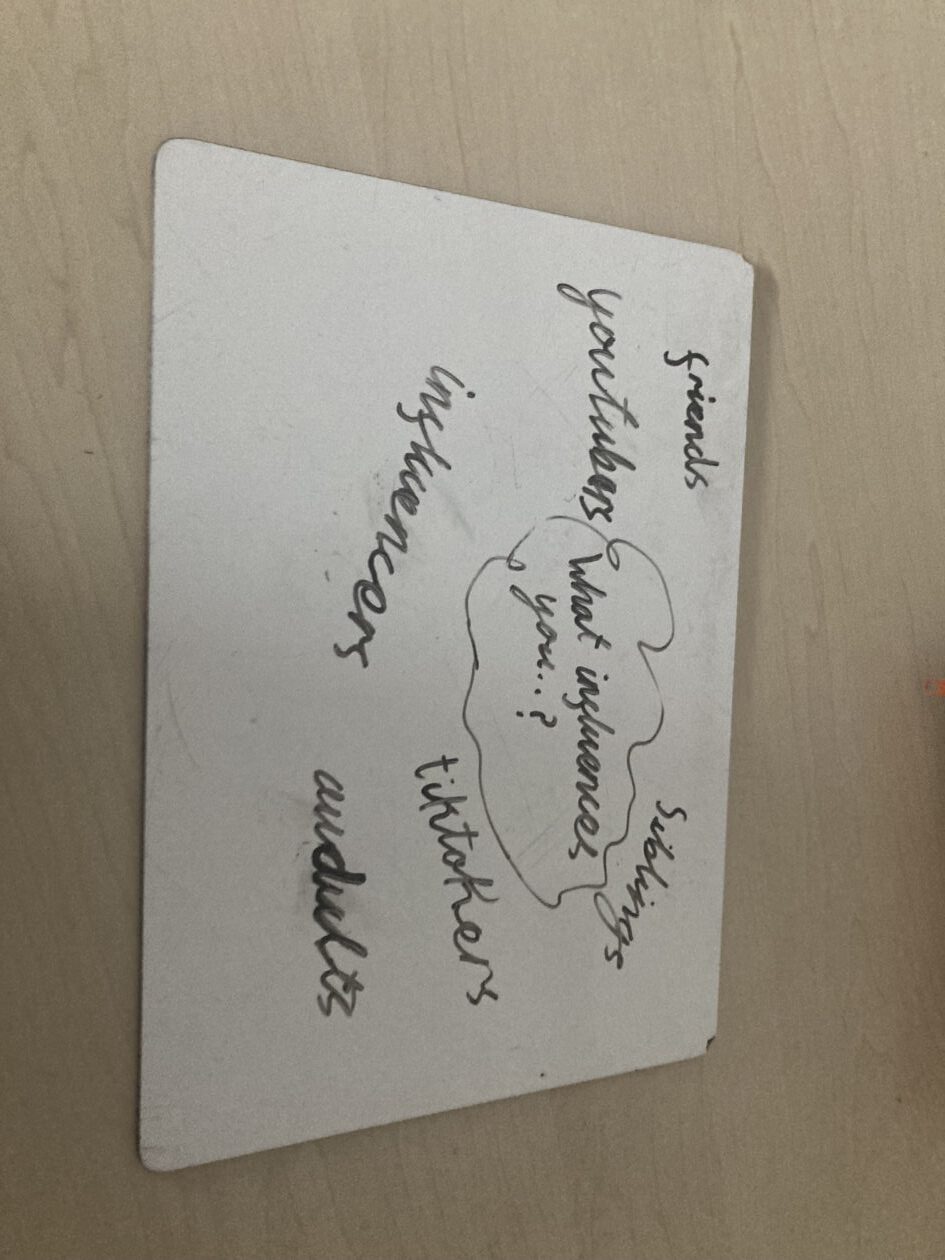 friends
siblings
youtubers
What influences
you...?
influencers
tiktokers
audults